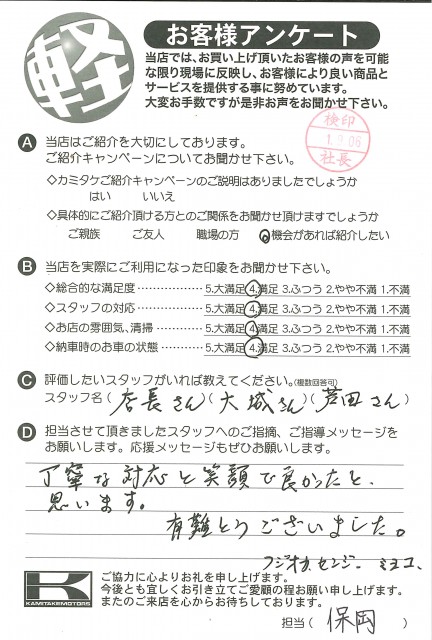 軽
お客様アンケート
当店では、お買い上げ頂いたお客様の声を可能
な限り現場に反映し、お客様により良い商品と
サービスを提供する事に努めています。
大変お手数ですが是非お声をお聞かせ下さい。
検印
1.9.06
社長
A 当店はご紹介を大切にしております。
ご紹介キャンペーンについてお聞かせ下さい。
◇カミタケご紹介キャンペーンのご説明はありましたでしょうか
はい いいえ
◇具体的にご紹介頂ける方とのご関係をお聞かせ頂けますでしょうか
ご親族 ご友人 職場の方 機会があれば紹介したい
B 当店を実際にご利用になった印象をお聞かせ下さい。
◇総合的な満足度……………5.大満足 4.満足 3.ふつう 2.やや不満 1.不満
◇スタッフの対応……………5.大満足 4.満足 3.ふつう 2.やや不満 1.不満
◇お店の雰囲気、清掃………5.大満足 4.満足 3.ふつう 2.やや不満 1.不満
◇納車時のお車の状態………5.大満足 4.満足 3.ふつう 2.やや不満 1.不満
C 評価したいスタッフがいれば教えてください。(複数回答可)
スタッフ名(店長さん)(大城さん)(芦田さん)
D 担当させて頂きましたスタッフへのご指摘、ご指導メッセージを
お願いします。応援メッセージもぜひお願いします。
丁寧な対応と笑顔で良かったと、
思います。
有難とうございました。
フジオカ センジー ミヨコ
K
KAMITAKEMOTORS
ご協力に心よりお礼を申し上げます。
今後とも宜しくお引き立てご愛顧の程お願い申し上げます。
またのご来店を心からお待ちしております。
担当(保岡)